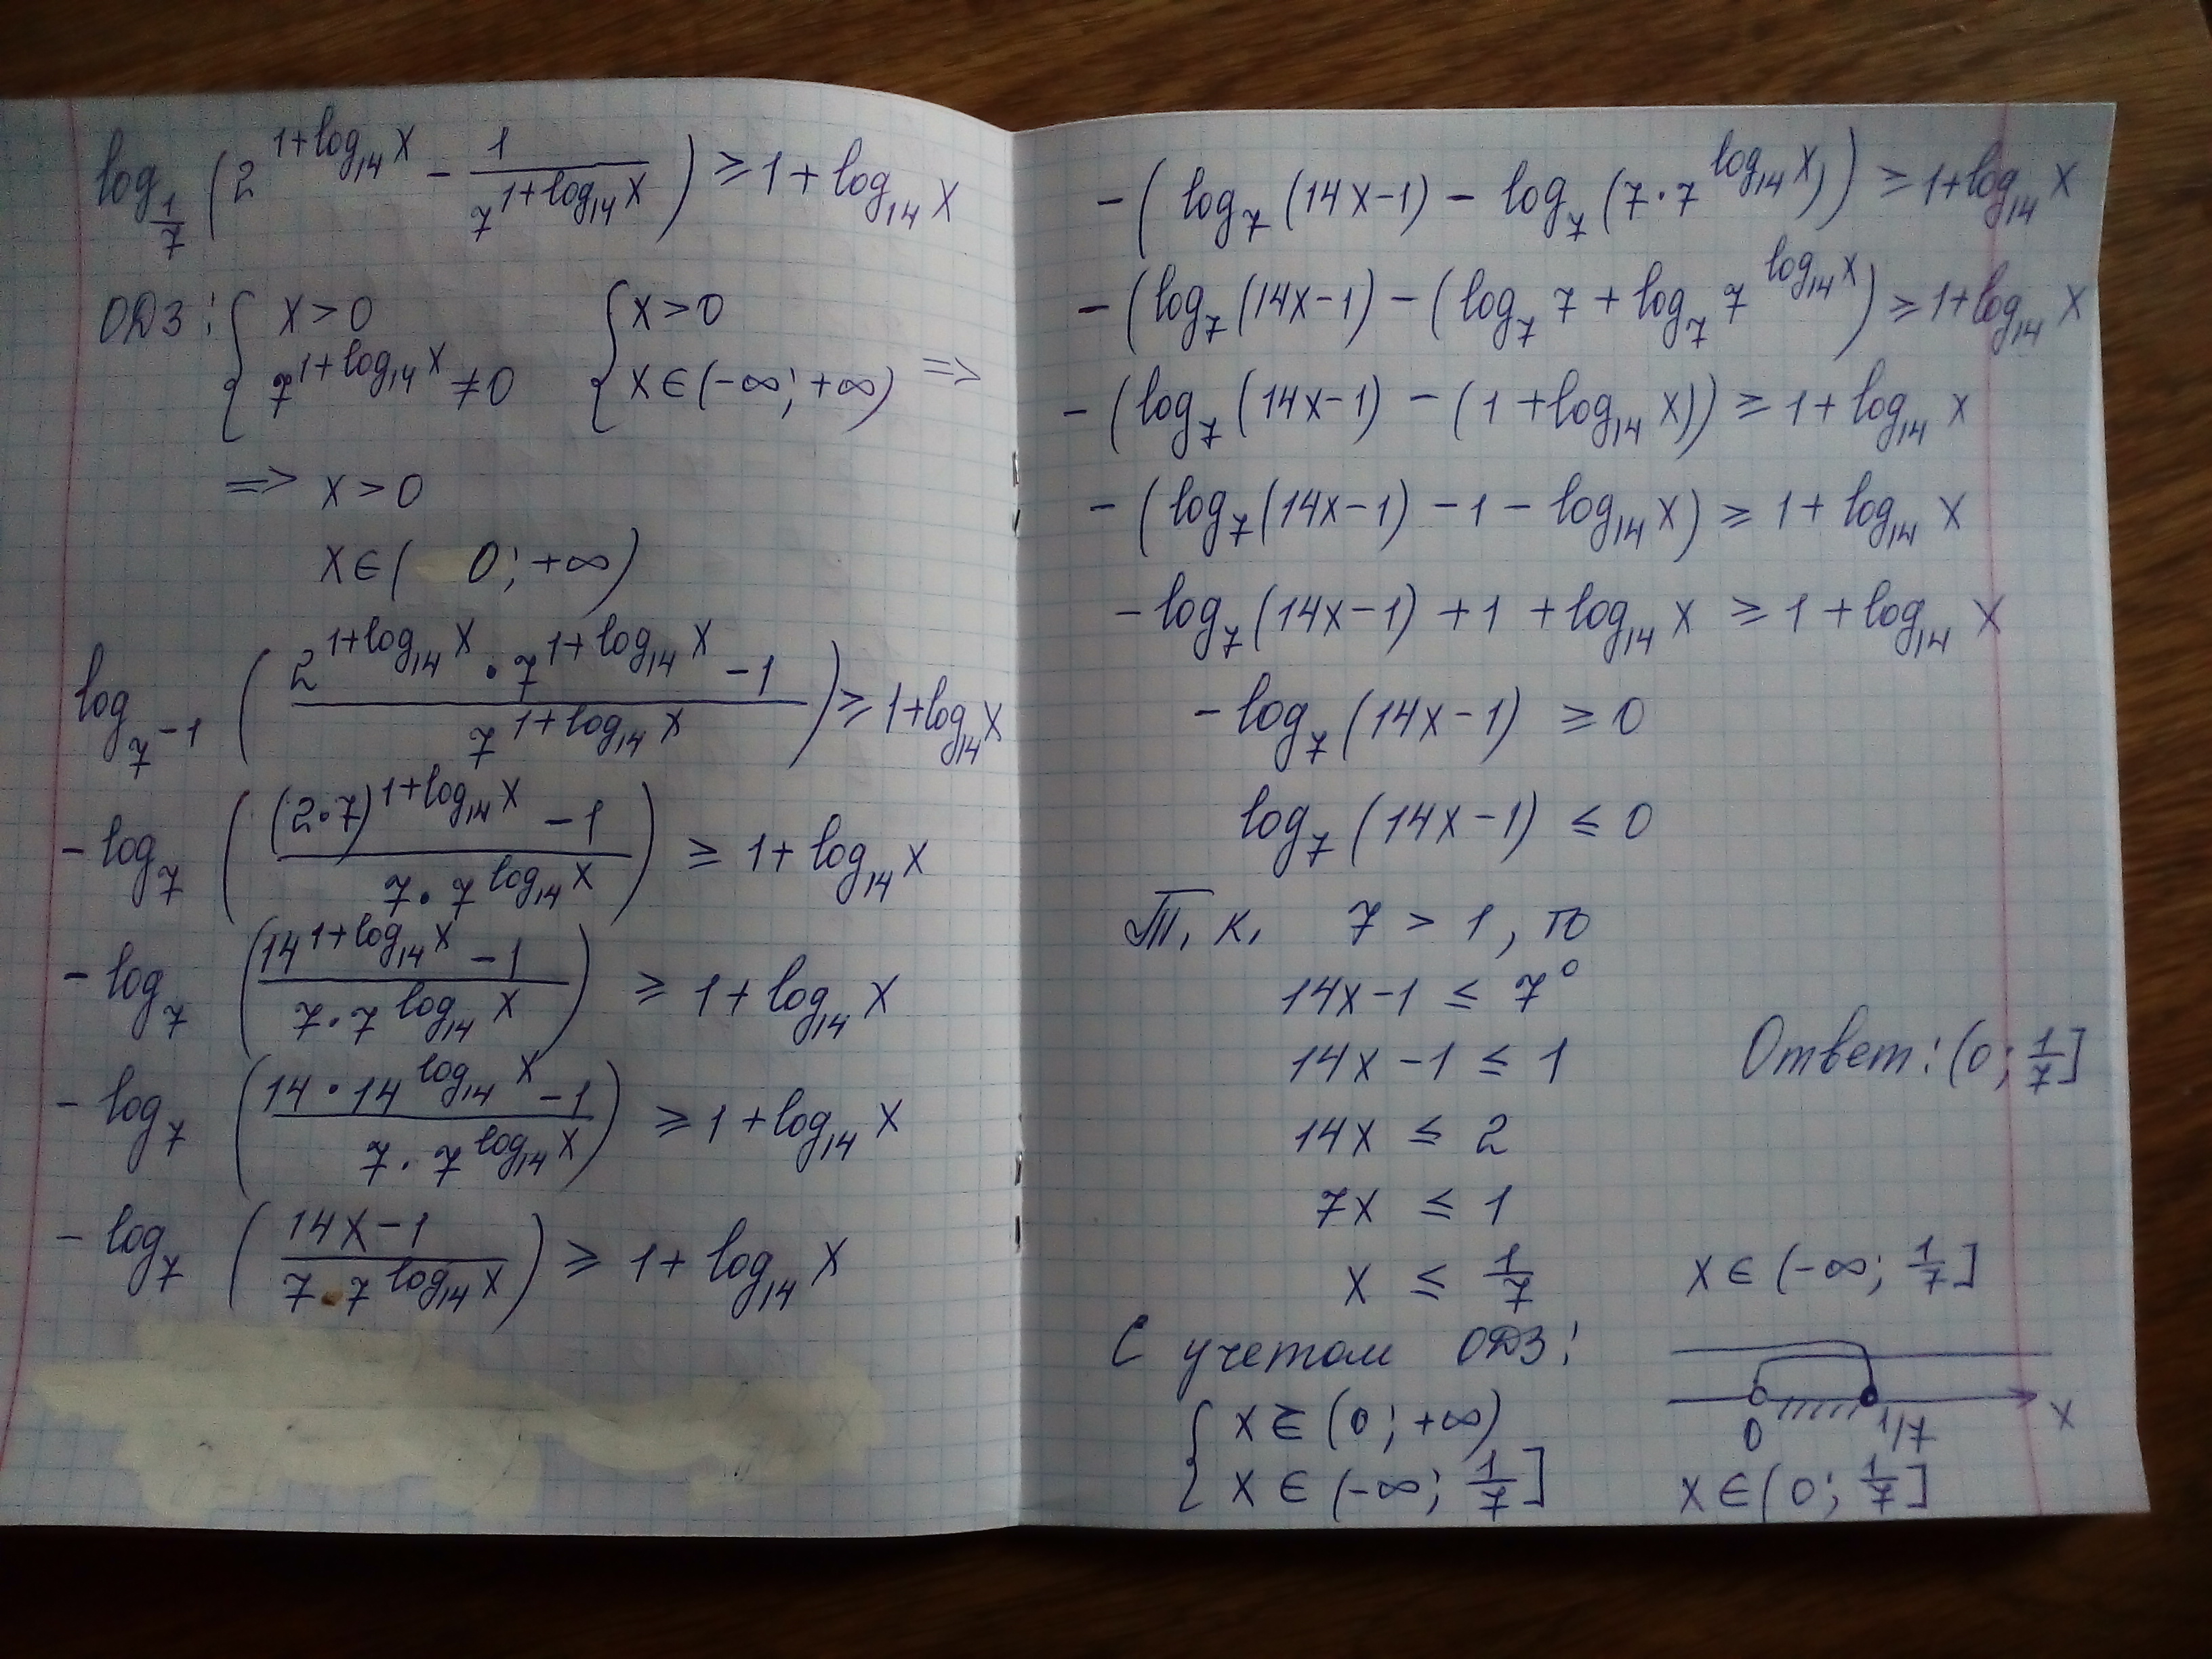 log_{1/7} (2^{1+log_{14} x} - 1/7^{1+log_{14} x}) ≥ 1 + log_{14} x
ОДЗ: { x > 0 { x > 0
7^{1+log_{14} x} ≠ 0 x ∈ (-∞; +∞) =>
=> x > 0
x ∈ ( 0; +∞)
log_{7^{-1}} ((2^{1+log_{14} x} · 7^{1+log_{14} x} - 1)/7^{1+log_{14} x}) ≥ 1 + log_{14} x
- log_7 (((2·7)^{1+log_{14} x} - 1)/(7 · 7^{log_{14} x})) ≥ 1 + log_{14} x
- log_7 ((14^{1+log_{14} x} - 1)/(7 · 7^{log_{14} x})) ≥ 1 + log_{14} x
- log_7 ((14 · 14^{log_{14} x} - 1)/(7 · 7^{log_{14} x})) ≥ 1 + log_{14} x
- log_7 ((14x - 1)/(7 · 7^{log_{14} x})) ≥ 1 + log_{14} x
- (log_7 (14x - 1) - log_7 (7 · 7^{log_{14} x})) ≥ 1 + log_{14} x
- (log_7 (14x - 1) - (log_7 7 + log_7 7^{log_{14} x}) ≥ 1 + log_{14} x
- (log_7 (14x - 1) - (1 + log_{14} x)) ≥ 1 + log_{14} x
- (log_7 (14x - 1) - 1 - log_{14} x) ≥ 1 + log_{14} x
- log_7 (14x - 1) + 1 + log_{14} x ≥ 1 + log_{14} x
- log_7 (14x - 1) ≥ 0
log_7 (14x - 1) ≤ 0
Т. к. 7 > 1, то
14x - 1 ≤ 7^0
14x - 1 ≤ 1
14x ≤ 2
7x ≤ 1
x ≤ 1/7
С учетом ОДЗ:
{ x ∈ (0; +∞)
x ∈ (-∞; 1/7]
Ответ: (0; 1/7]
x ∈ (-∞; 1/7]
0 1/7 x
x ∈ (0; 1/7]